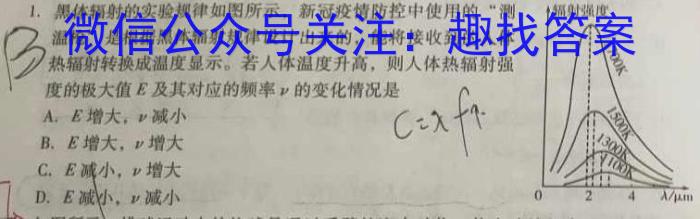 1. 黑体辐射的实验规律如图所示，新冠疫情防控中使用的“测
微信公众号关注：趣找答案
热辐射转换成温度显示。若人体温度升高，则人体热辐射强
度的极大值 E 及其对应的频率 ν 的变化情况是
A. E 增大，ν 减小
B. E 增大，ν 增大
C. E 减小，ν 增大
D. E 减小，ν 减小
B
C=λf
辐射强度
1500K
1300K
1100K
0 2 4 λ/μm